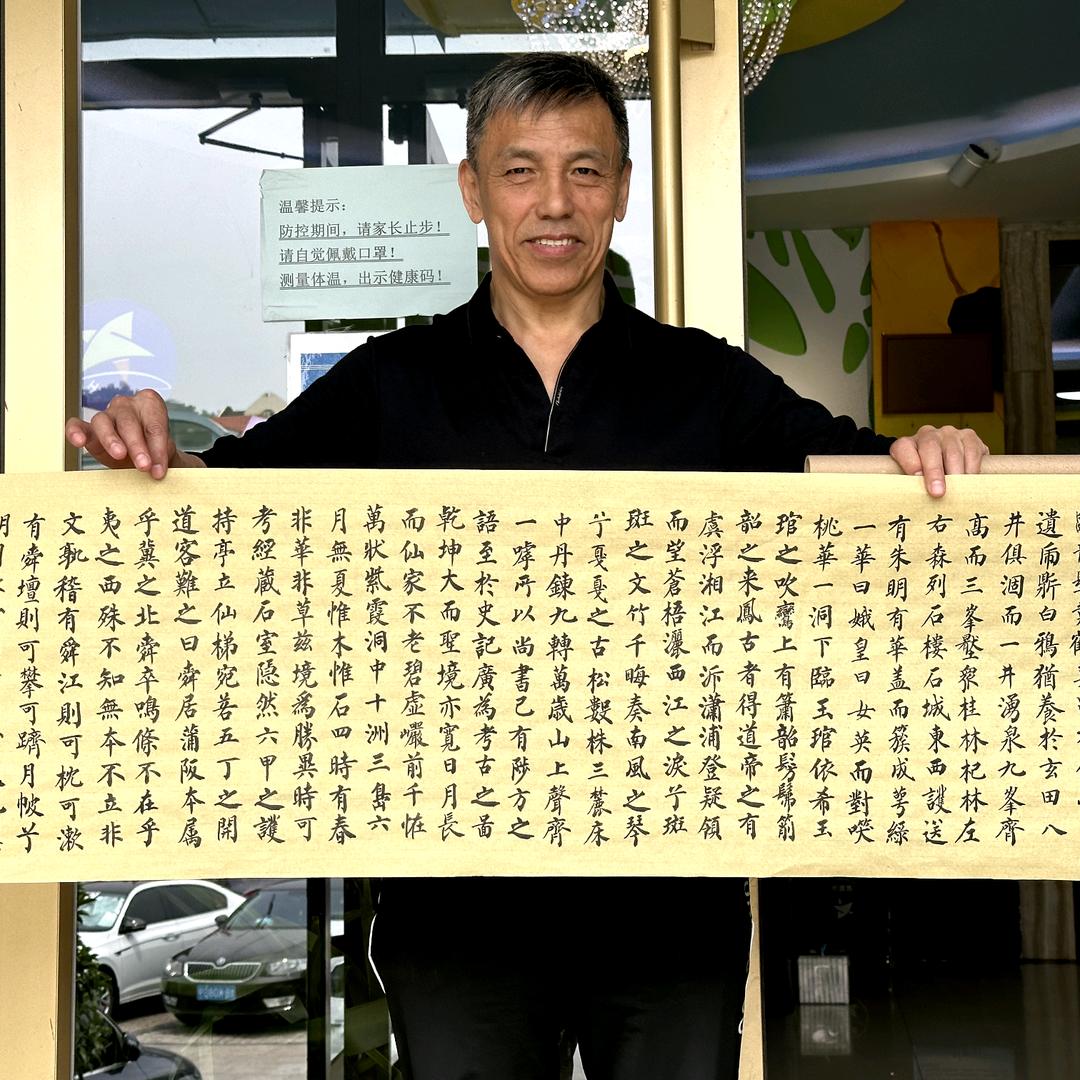 温馨提示:
防控期间，请家长止步！
请自觉佩戴口罩！
测量体温，出示健康码！
遺廟斷白鴉猶養於玄田八
井俱涸而一井湧泉九峯齊
高而三峯衆桂林杞林左
右森列石樓石城東西護送
有朱明有華盖而簇成萼綠
一華曰娥皇曰女英而對
桃華一洞下臨玉琯依希玉
琯之吹鸞上有簫韶髣髴箾
韶之来鳳古者得道帝之有
虞浮湘江而泝瀟浦登疑領
而望蒼梧灑西江之淚兮斑
斑之文竹千晦奏南風之琴
兮戛戛之古松數株三麓床
中丹鍊九轉萬歳山上聲齊
一嘑所以尚書已有陟方之
語至於史記廣為考古之啚
乾坤大而聖境亦寛日月長
而仙家不老碧虛巖前千恠
萬狀紫霞洞中十洲三島六
月無夏惟木惟石四時有春
非華非草兹境爲勝異時可
考經蔵石室隐然六甲之護
持亭立仙梯宛若五丁之開
道客難之曰舜居蒲阪本属
乎冀之北舜卒鳴條不在乎
夷之西殊不知無本不立非
文孰稽有舜江則可枕可漱
有舜壇則可攀可躋月帔兮